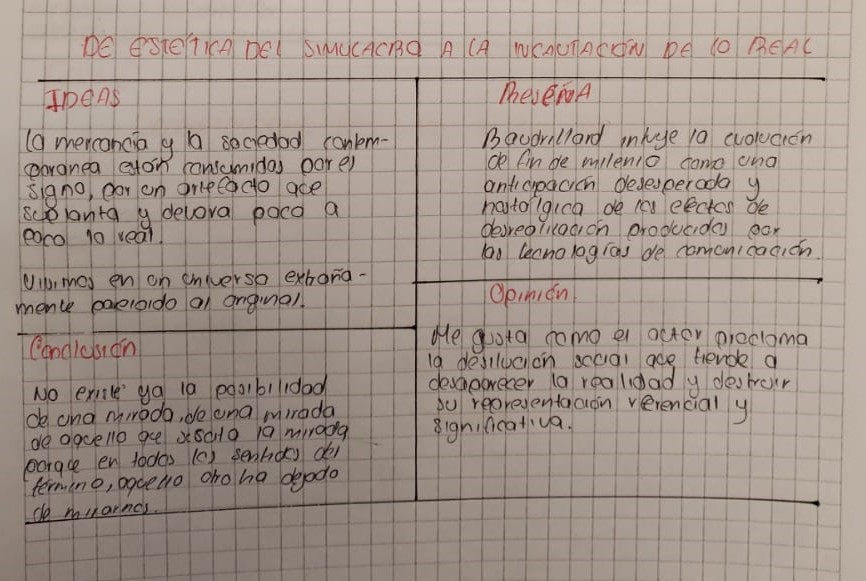 DE ESTETICA DEL SIMULACRO A LA INCAUTACIÓN DE LO REAL
IDEAS
la mercancía y la sociedad contem-
poranea están consumidas por el
signo, por un artefacto que
suplanta y devora poco a
poco lo real.
Vivimos en un universo extraña-
mente parecido al original.
Conclusión
No existe ya la posibilidad
de una mirada, de una mirada
de aquello que suscita la mirada
porque en todos los sentidos del
término, aquello otro ha dejado
de mirarnos.
ReseñA
Baudrillard intuye la evolución
de fin de milenio como una
anticipación desesperada y
nostolgica de los efectos de
desrealización producidos por
las tecnologías de comunicación.
Opinión
Me gusta como el autor proclama
la desilución social que tiende a
desaparecer la realidad y destruir
su representación verencial y
significativa.